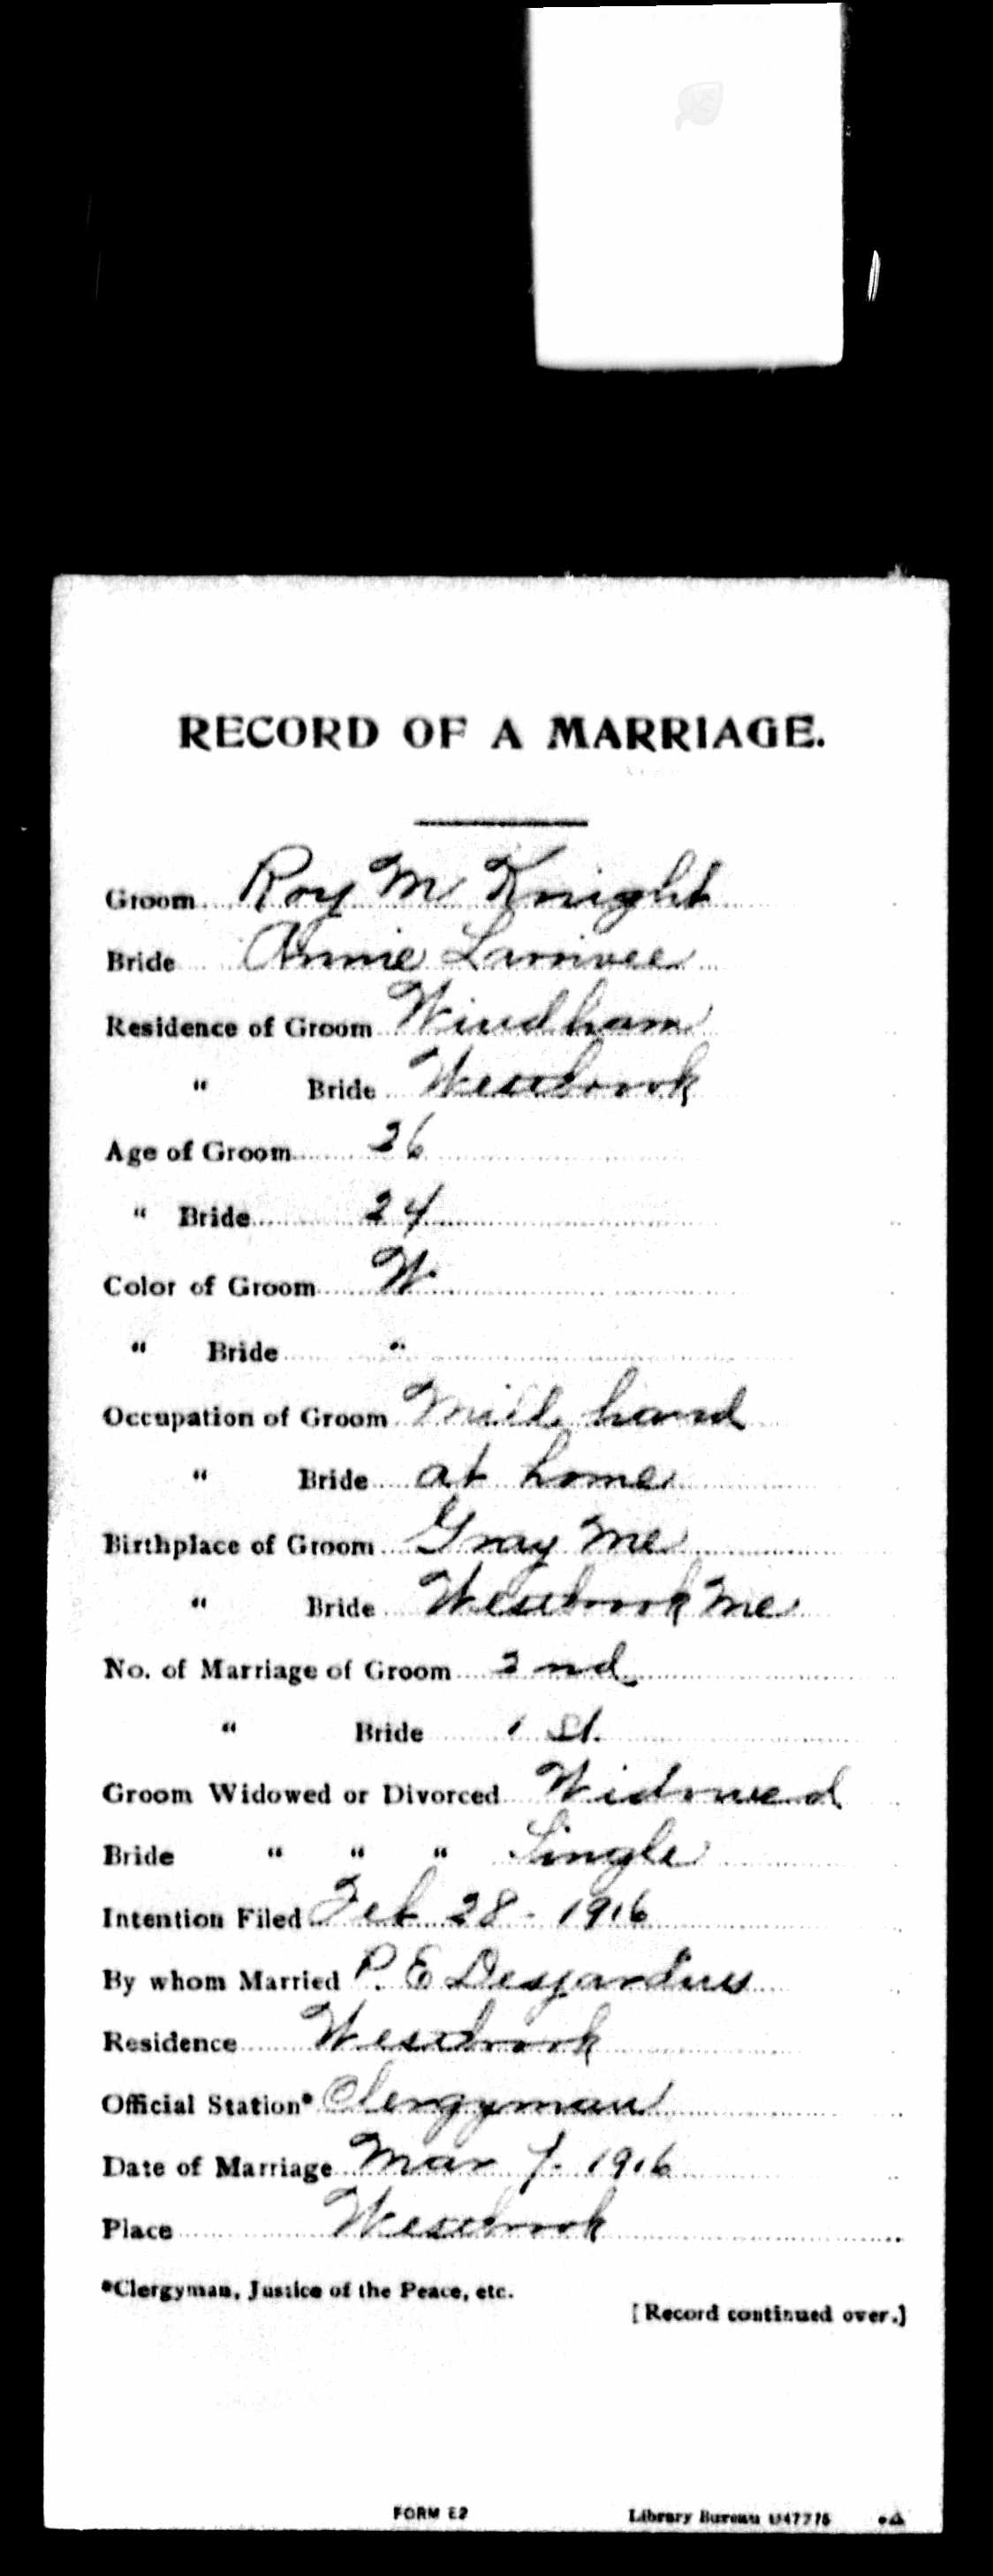 RECORD OF A MARRIAGE.
Groom Roy M Knight
Bride Annie Larrivee
Residence of Groom Windham
" Bride Westbrook
Age of Groom 26
" Bride 24
Color of Groom W
" Bride "
Occupation of Groom Mill hand
" Bride at home
Birthplace of Groom Gray Me
" Bride Westbrook Me
No. of Marriage of Groom 2nd
" Bride 1st.
Groom Widowed or Divorced Widowed
Bride " " " Single
Intention Filed Feb 28 - 1916
By whom Married P. E Desjardins
Residence Westbrook
Official Station* Clergyman
Date of Marriage Mar 1916
Place Westbrook
*Clergyman, Justice of the Peace, etc.
[Record continued over.]
FORM E2 Library Bureau